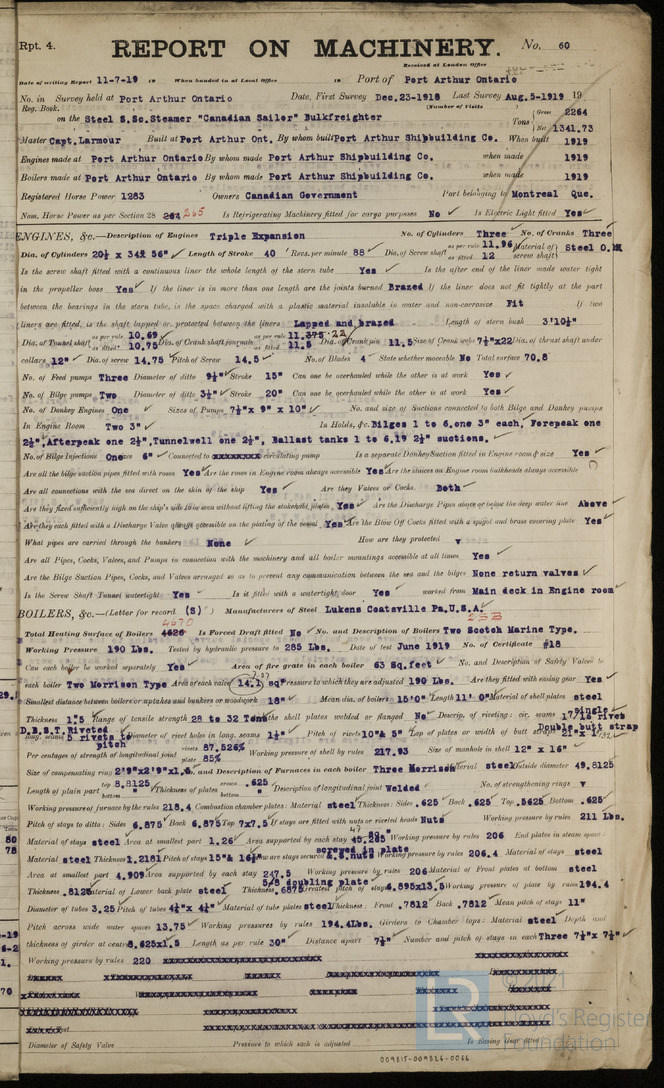 Rpt. 4. REPORT ON MACHINERY. No. 60
Received at London Office
Date of writing Report 11-7-19 19 When handed in at Local Office 19 Port of Port Arthur Ontario
No. in Survey held at Port Arthur Ontario Date, First Survey Dec.23-1918 Last Survey Aug.5-1919 19
Reg. Book. (Number of Visits)
on the Steel S.Sc.Steamer "Canadian Sailor" Bulkfreighter Tons Gross 2264 Net 1341.73
Master Capt.Larmour Built at Port Arthur Ont. By whom built Port Arthur Shipbuilding Co. When built 1919
Engines made at Port Arthur Ontario By whom made Port Arthur Shipbuilding Co. when made 1919
Boilers made at Port Arthur Ontario By whom made Port Arthur Shipbuilding Co. when made 1919
Registered Horse Power 1283 Owners Canadian Government Port belonging to Montreal Que.
Nom. Horse Power as per Section 28 264 265 Is Refrigerating Machinery fitted for cargo purposes No Is Electric Light fitted Yes
ENGINES, &c.—Description of Engines Triple Expansion No. of Cylinders Three No. of Cranks Three
Dia. of Cylinders 20½ x 34½ 56" Length of Stroke 40 Revs. per minute 88 Dia. of Screw shaft as per rule 11.96 as fitted 12 Material of screw shaft Steel O.H
Is the screw shaft fitted with a continuous liner the whole length of the stern tube Yes Is the after end of the liner made water tight
in the propeller boss Yes If the liner is in more than one length are the joints burned Brazed If the liner does not fit tightly at the part
between the bearings in the stern tube, is the space charged with a plastic material insoluble in water and non-corrosive Fit If two
liners are fitted, is the shaft lapped or protected between the liners Lapped and brazed Length of stern bush 3'10½"
Dia. of Tunnel shaft as per rule 10.69 as fitted 10.75 Dia. of Crank shaft journals as per rule 11.375 as fitted 11.5 Dia. of Crank pin 11.5 Size of Crank webs 7½"x22 Dia. of thrust shaft under
collars 12" Dia. of screw 14.75 Pitch of Screw 14.5 No. of Blades 4 State whether moveable No Total surface 70.8
No. of Feed pumps Three Diameter of ditto 9½" Stroke 15" Can one be overhauled while the other is at work Yes
No. of Bilge pumps Two Diameter of ditto 3½" Stroke 20" Can one be overhauled while the other is at work Yes
No. of Donkey Engines One Sizes of Pumps 7½"x 9" x 10" No. and size of Suctions connected to both Bilge and Donkey pumps
In Engine Room Two 3" In Holds, &c. Bilges 1 to 6,one 3" each, Forepeak one
2½",Afterpeak one 2½",Tunnelwell one 2½", Ballast tanks 1 to 6,19 2½" suctions.
No. of Bilge Injections One sizes 6" Connected to circulating pump Is a separate Donkey Suction fitted in Engine room & size Yes
Are all the bilge suction pipes fitted with roses Yes Are the roses in Engine room always accessible Yes Are the sluices on Engine room bulkheads always accessible
Are all connections with the sea direct on the skin of the ship Yes Are they Valves or Cocks. Both
Are they fixed sufficiently high on the ship's side to be seen without lifting the stokehold plates Yes Are the Discharge Pipes above or below the deep water line Above
Are they each fitted with a Discharge Valve always accessible on the plating of the vessel Yes Are the Blow Off Cocks fitted with a spigot and brass covering plate Yes
What pipes are carried through the bunkers None How are they protected v
Are all Pipes, Cocks, Valves, and Pumps in connection with the machinery and all boiler mountings accessible at all times Yes
Are the Bilge Suction Pipes, Cocks, and Valves arranged so as to prevent any communication between the sea and the bilges None return valves
Is the Screw Shaft Tunnel watertight Yes Is it fitted with a watertight door Yes worked from Main deck in Engine room
BOILERS, &c.—(Letter for record (S)) Manufacturers of Steel Lukens Coatsville Pa,U.S.A.
4670 2SB
Total Heating Surface of Boilers 4626 Is Forced Draft fitted No No. and Description of Boilers Two Scotch Marine Type.
Working Pressure 190 Lbs. Tested by hydraulic pressure to 285 Lbs. Date of test June 1919 No. of Certificate #18
Can each boiler be worked separately Yes Area of fire grate in each boiler 63 Sq.feet No. and Description of Safety Valves to
each boiler Two Morrison Type Area of each valve 14.1 sq" Pressure to which they are adjusted 190 Lbs. Are they fitted with easing gear Yes
Smallest distance between boilers or uptakes and bunkers or woodwork 18" Mean dia. of boilers 15'0" Length 11' 0" Material of shell plates steel
Thickness 1"5 Range of tensile strength 28 to 32 Tons Are the shell plates welded or flanged No Descrip. of riveting: cir. seams single
long. seams Diameter of rivet holes in long. seams 1½" Pitch of rivets 10"& 5" Lap of plates or width of butt straps Double butt strap
Per centages of strength of longitudinal joint rivets 87.526% plate 85% Working pressure of shell by rules 217.93 Size of manhole in shell 12" x 16"
Size of compensating ring No. and Description of Furnaces in each boiler Three Morrison Material steel Outside diameter 49.8125
Length of plain part top 8.8125 bottom Thickness of plates crown bottom .625 Description of longitudinal joint Welded No. of strengthening rings v
Working pressure of furnace by the rules 218.4 Combustion chamber plates: Material steel Thickness: Sides .625 Back .625 Top .5625 Bottom .625
Pitch of stays to ditto: Sides 6.875 Back 6.875 Top 7x7.5 If stays are fitted with nuts or riveted heads Nuts Working pressure by rules 211 Lbs.
Material of stays steel Area at smallest part 1.26 Area supported by each stay Working pressure by rules 206 End plates in steam space:
Material steel Thickness 1.2181 Pitch of stays How are stays secured screwed in plate &.S.nuts Working pressure by rules 206.4 Material of stays steel
Area at smallest part 4.909 Area supported by each stay 247.5 Working pressure by rules 206.5 Material of Front plates at bottom steel
Thickness .8125 Material of Lower back plate steel Thickness .6875 5/8 doubling plate Greatest pitch of stays 6.895x13.5 Working pressure of plate by rules 194.4
Diameter of tubes 3.25 Pitch of tubes 4½"x 4½" Material of tube plates steel Thickness: Front .7812 Back .7812 Mean pitch of stays 11"
Pitch across wide water spaces 13.75 Working pressures by rules 194.4Lbs. Girders to Chamber tops: Material steel Depth and
thickness of girder at centre 8.625x1.5 Length as per rule 30" Distance apart 7½" Number and pitch of stays in each Three 7½"x 7½"
Working pressure by rules 220
Diameter of Safety Valve Pressure to which each is adjusted Is Easing Gear fitted
009815-009826-0066
Lloyd's Register
Foundation